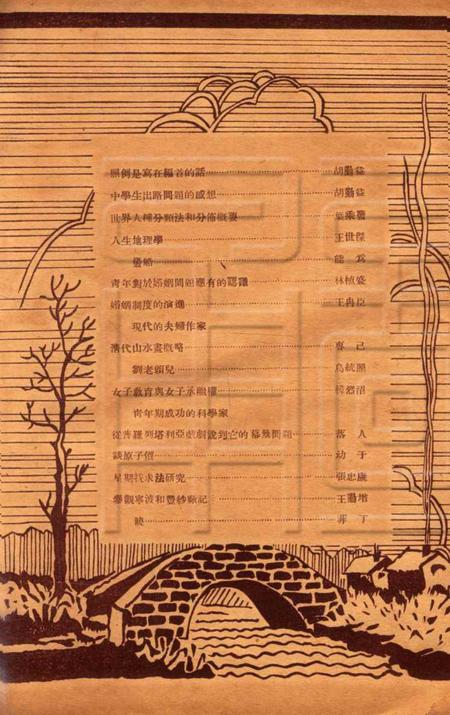 照例是寫在編首的話……胡勤益
中學生出路問題的感想……胡勤益
世界人種分類法和分佈概要……葉乘龍
人生地理學……王世傑
青年對於婚姻問題應有的認識……林植盛
婚姻制度的演進……王冉臣
現代的夫婦作家
清代山水畫概略……專己
劉老頭兒……烏統照
女子教育與女子承繼權
青年期成功的科學家
從普羅列塔利亞戲劇說到它的幕幾問題……落人
談原子價……幼于
星期找求法研究……張忠康
參觀寧波和豐紗廠記……王勛增
曉……菲丁